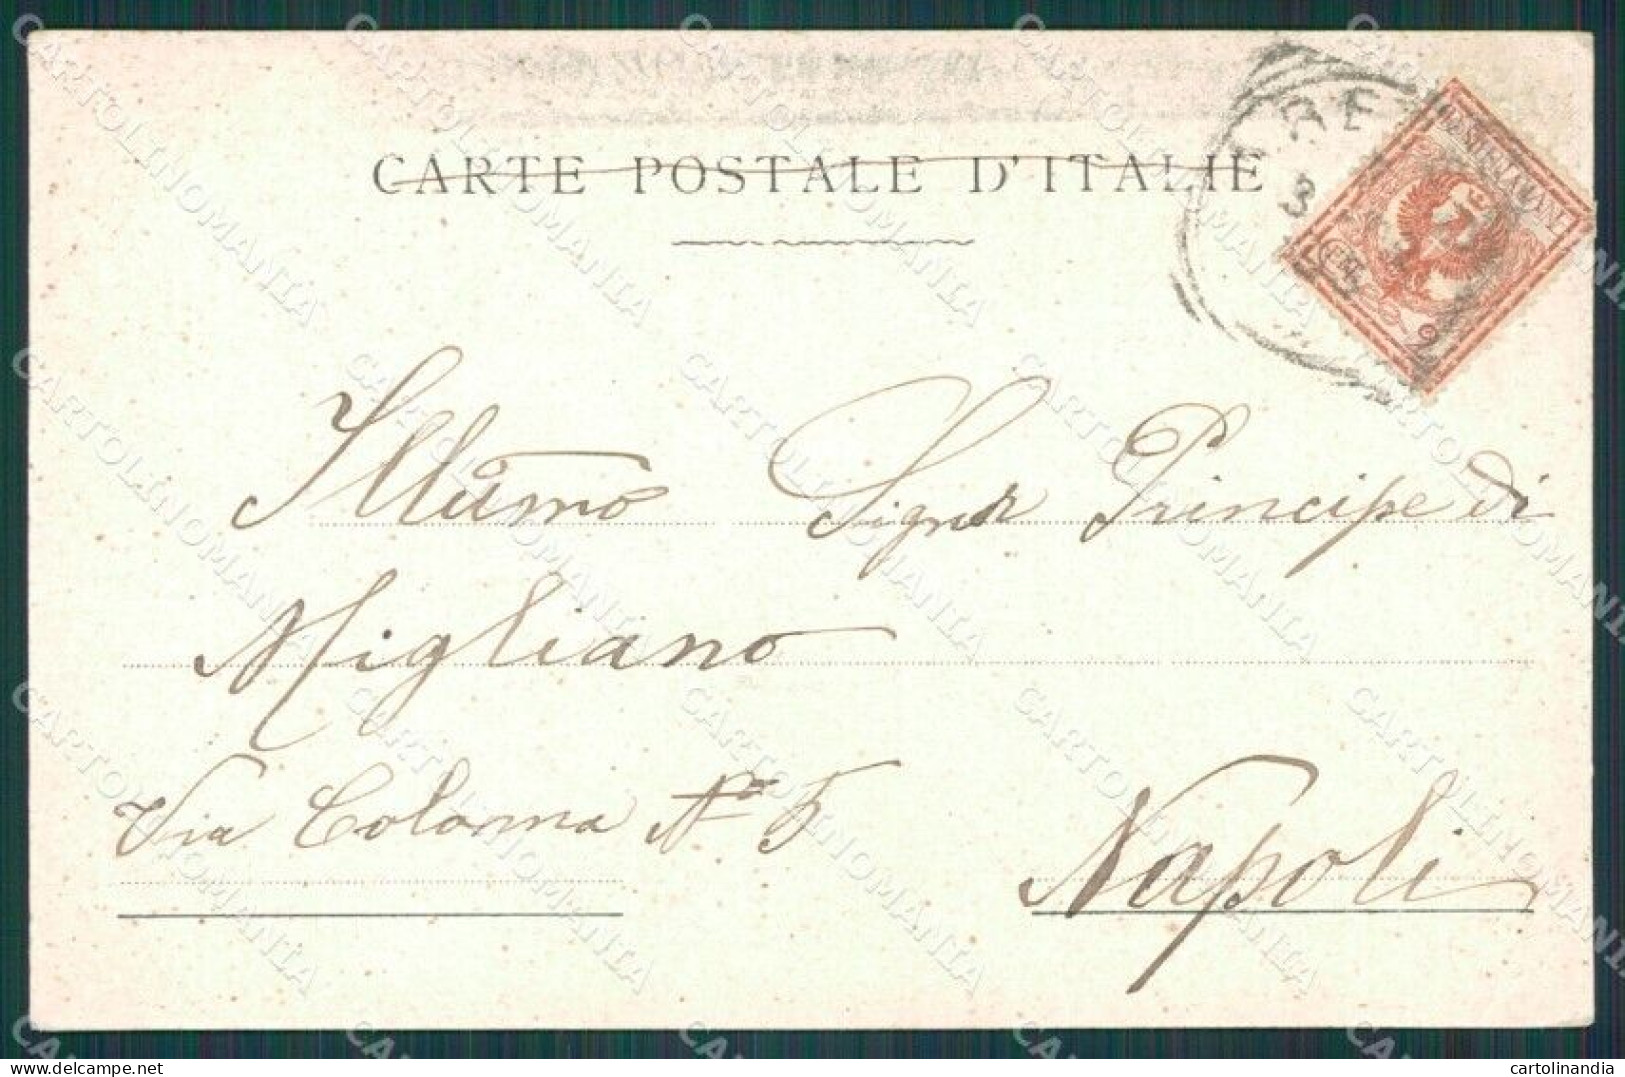 CARTE POSTALE D'ITALIE
CENT. 2
Illumo Signor Principe di
Migliano
Via Colonna No 5
Napoli
CARTOLINOMANIA
cartolinandia
delcampe.net